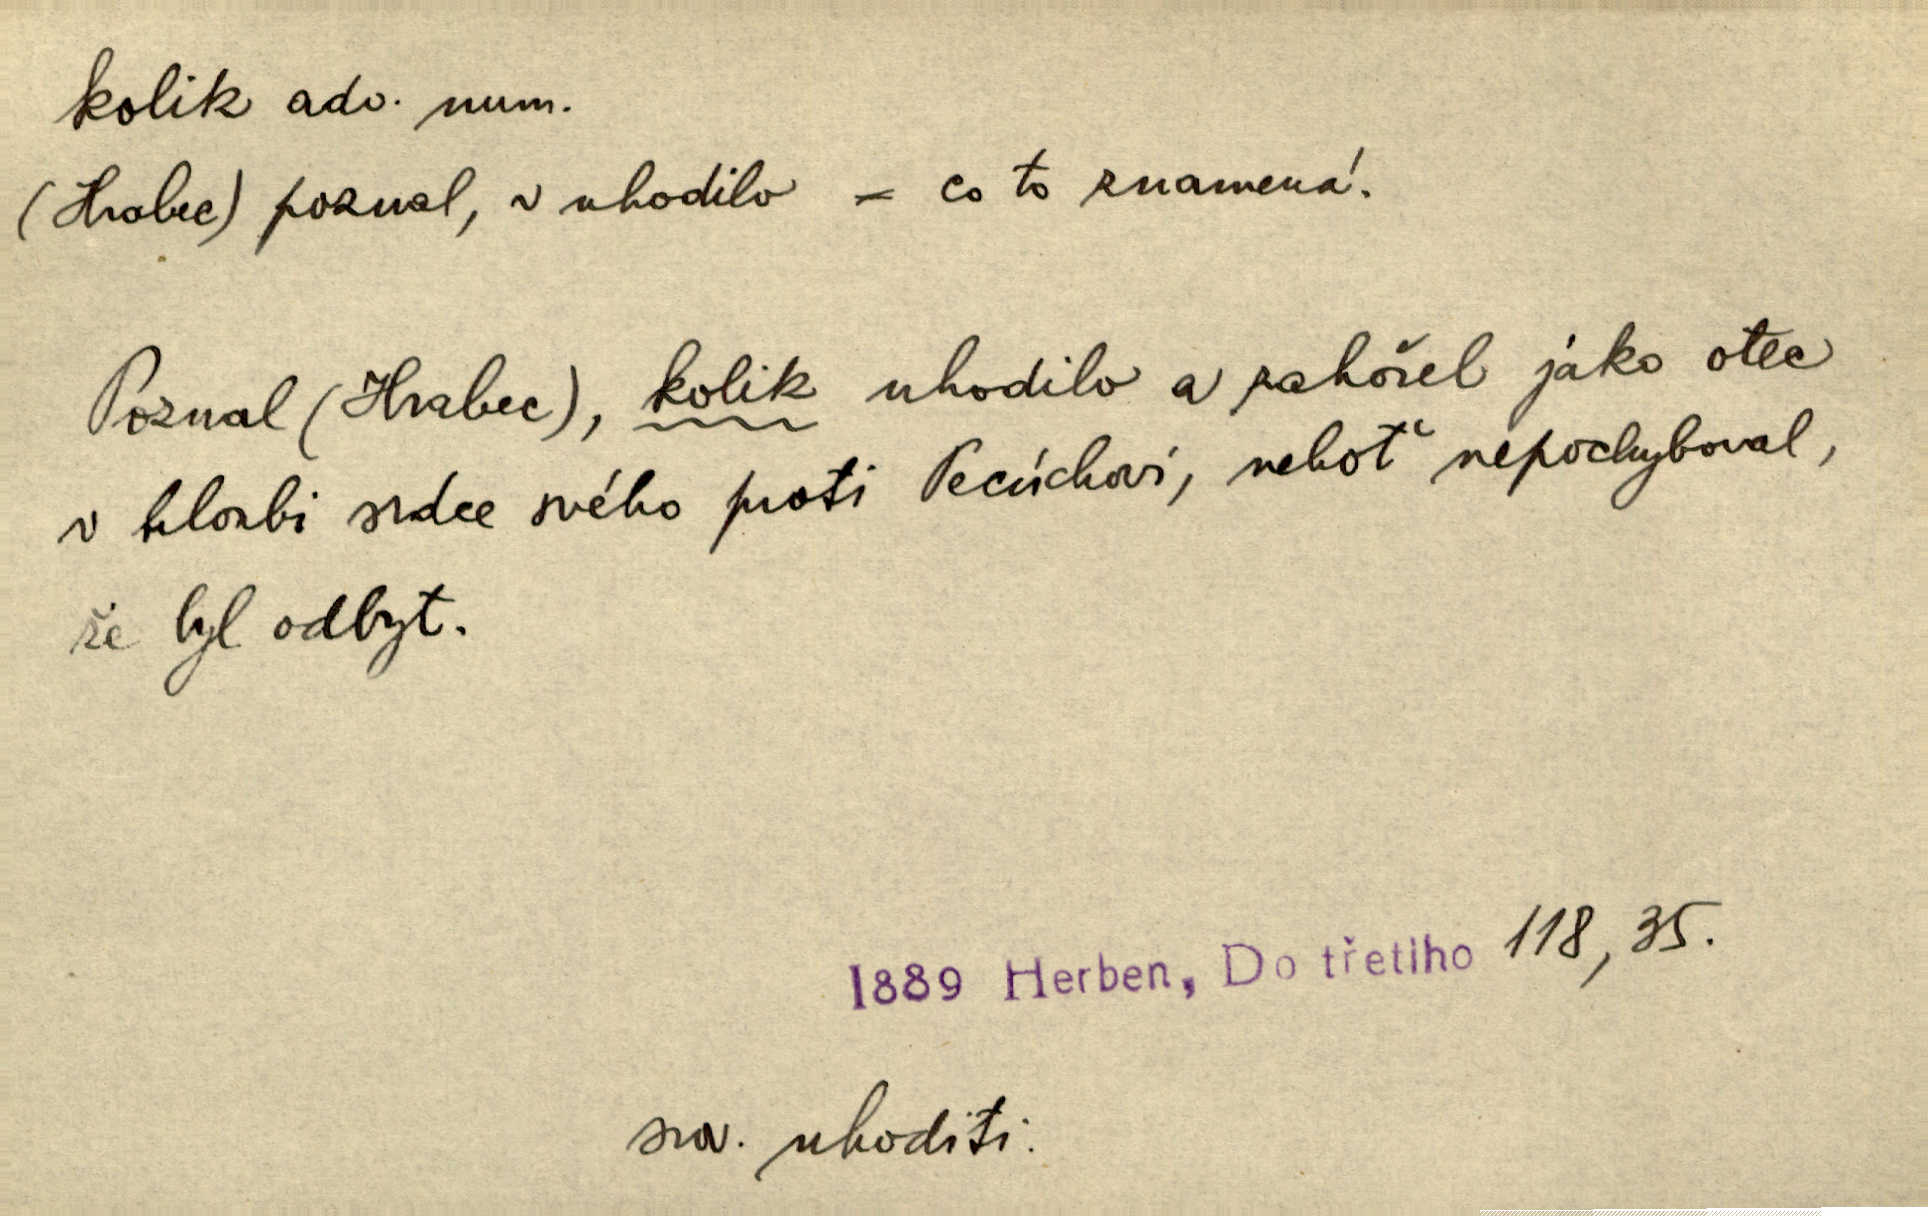 kolik adv. num.
(Hrabec) poznal, v uhodilo = co to znamená.
Poznal (Hrabec), kolik uhodilo a zahořel jako otec
v hloubi srdce svého proti Pecúchovi, neboť nepochyboval,
že byl odbyt.
1889 Herben, Do třetího 118, 35.
srv. uhoditi.